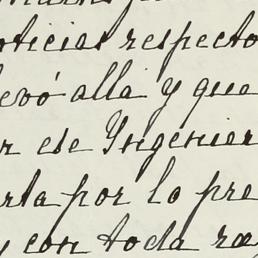 oticias respecto
levó allá y que
r ese Ingenier
rla por lo pre
y con toda ra